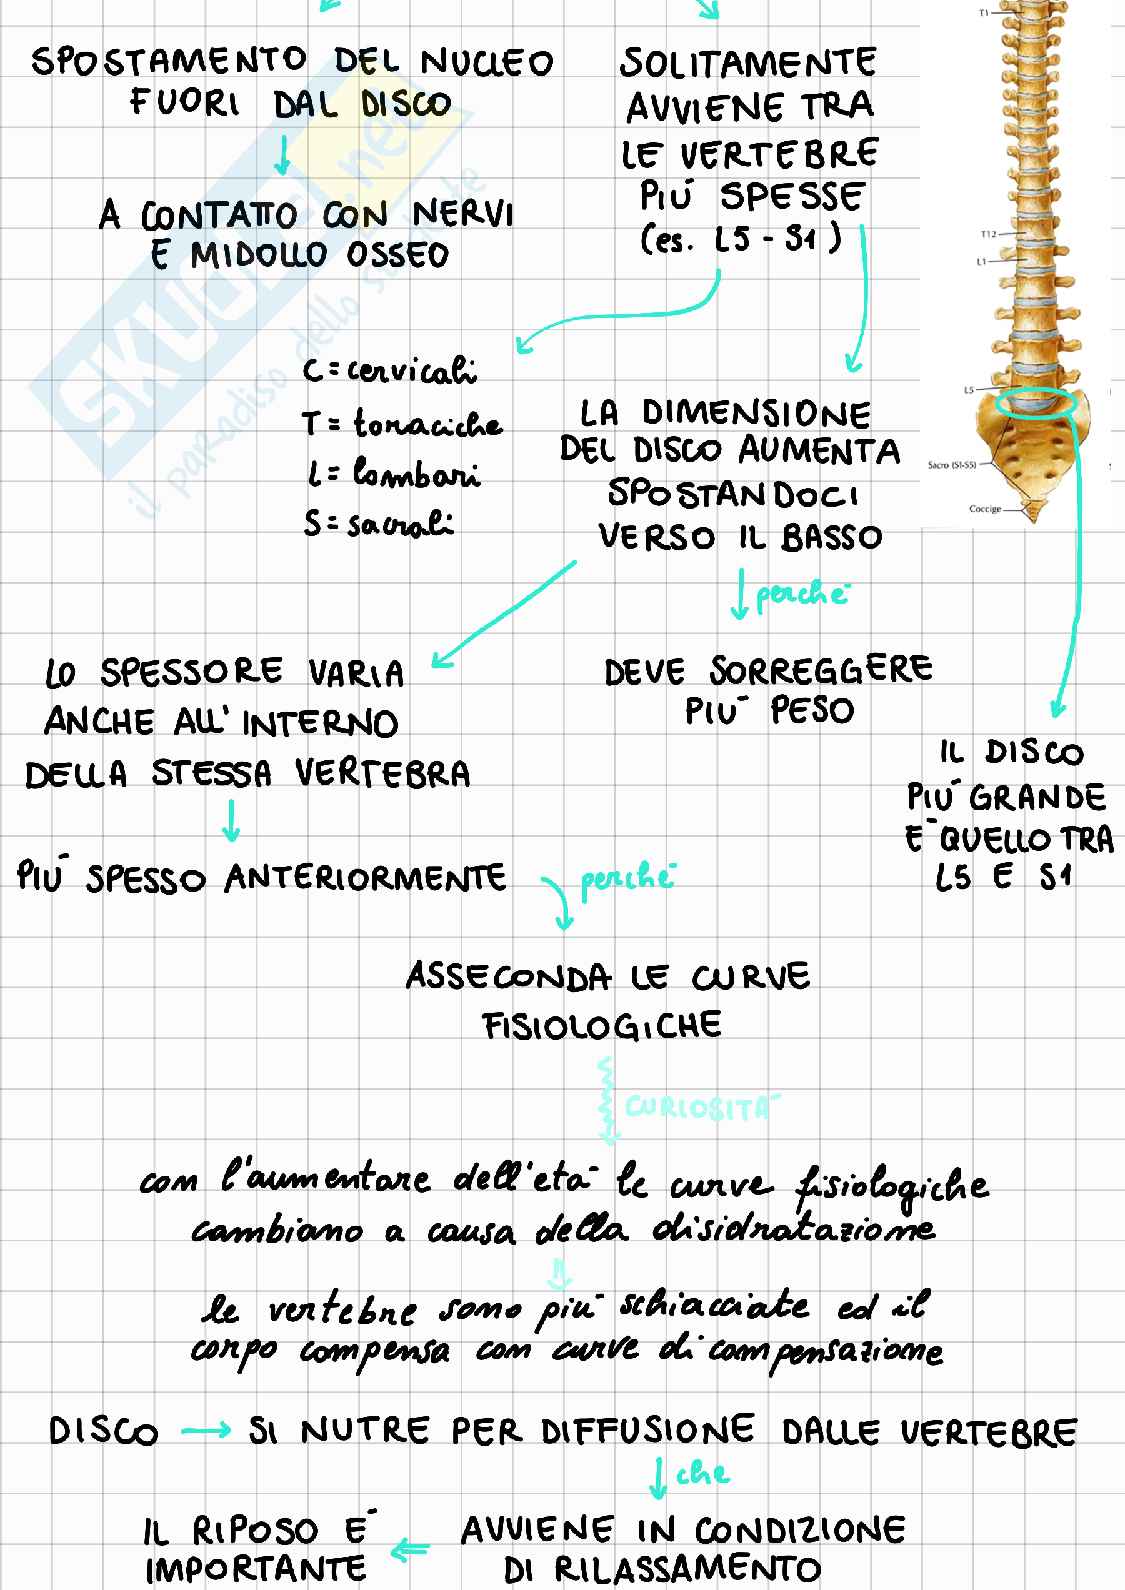 SPOSTAMENTO DEL NUCLEO
FUORI DAL DISCO
A CONTATTO CON NERVI
E MIDOLLO OSSEO
SOLITAMENTE
AVVIENE TRA
LE VERTEBRE
PIÙ SPESSE
(es. L5 - S1)
T1
T12
L1
L5
Sacro (S1-S5)
Coccige
C = cervicali
T = toraciche
L = lombari
S = sacrali
LA DIMENSIONE
DEL DISCO AUMENTA
SPOSTANDOCI
VERSO IL BASSO
perché
DEVE SORREGGERE
PIÙ PESO
LO SPESSORE VARIA
ANCHE ALL'INTERNO
DELLA STESSA VERTEBRA
IL DISCO
PIÙ GRANDE
È QUELLO TRA
L5 E S1
PIÙ SPESSO ANTERIORMENTE
perché
ASSECONDA LE CURVE
FISIOLOGICHE
CURIOSITÀ
con l'aumentare dell'età le curve fisiologiche
cambiano a causa della disidratazione
le vertebre sono più schiacciate ed il
corpo compensa con curve di compensazione
DISCO → SI NUTRE PER DIFFUSIONE DALLE VERTEBRE
che
IL RIPOSO È
IMPORTANTE
AVVIENE IN CONDIZIONE
DI RILASSAMENTO
SKUOLA.net
il paradiso dello studente